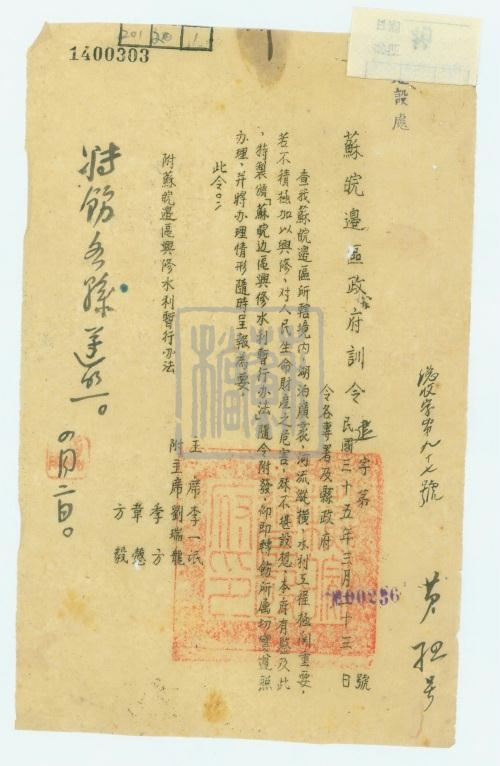 1400303
設處
蘇皖邊區政府訓令
建字第 號
民國三十五年三月 十三日
00236
令各專署及縣政府
查我蘇皖邊區所轄境内,湖泊廣袤,河流縱橫,水利工程極關重要,
若不積極加以興修,对人民生命財產之危害,殊不堪設想,本府有鑒及此
,特製頒「蘇皖边區興修水利暫行办法」隨令附發,仰即轉飭所屬切實遵照
办理,并將办理情形隨時呈報為要。
此令。
附蘇皖邊區興修水利暫行办法
主席 李一氓
附主席 劉瑞龍
季方
韋慤
方毅
轉飭各縣遵照。
四月二日。